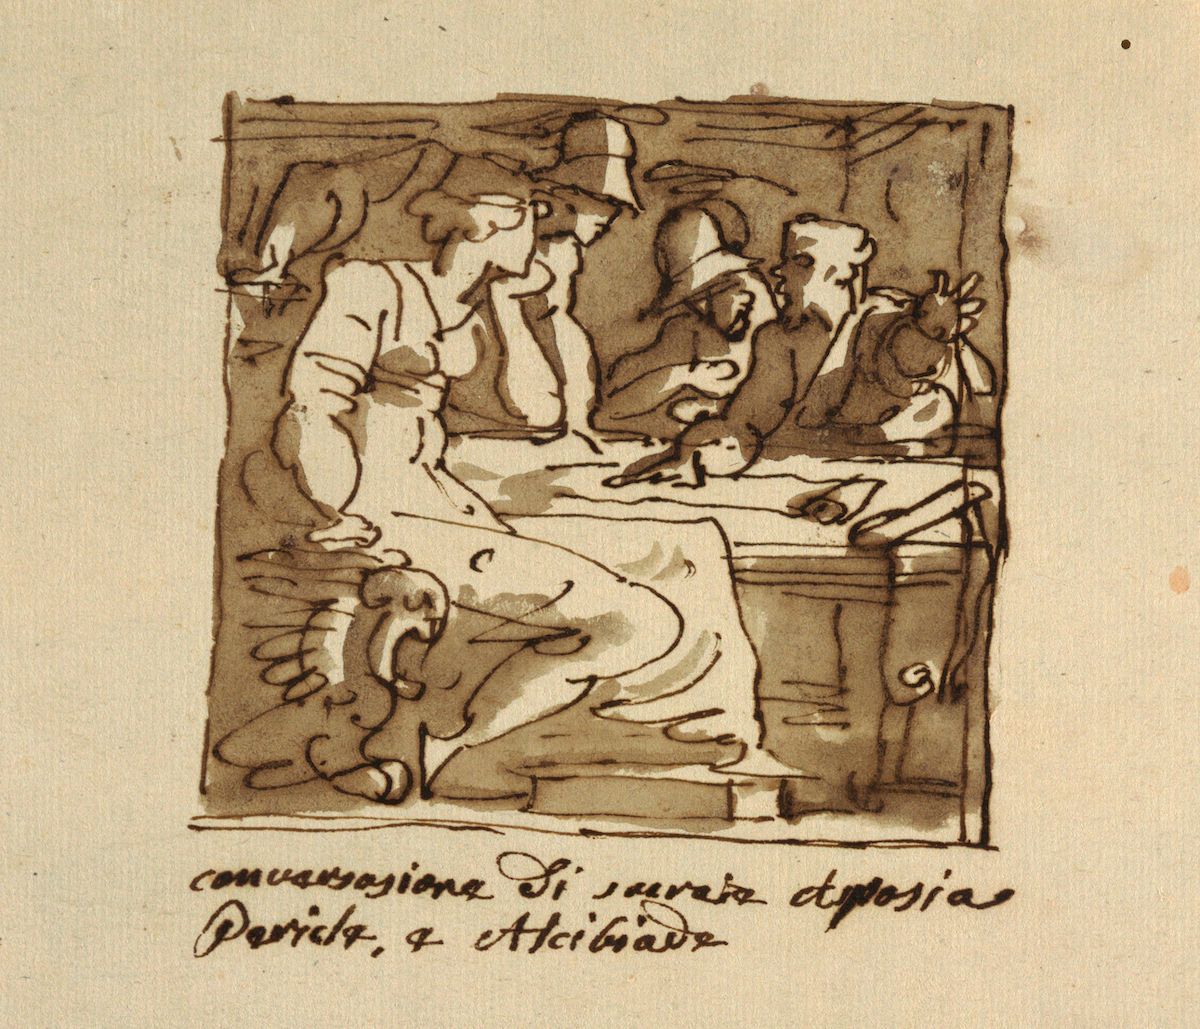 conversasione Di socrate Aspasia
Pericle, e Alcibiade